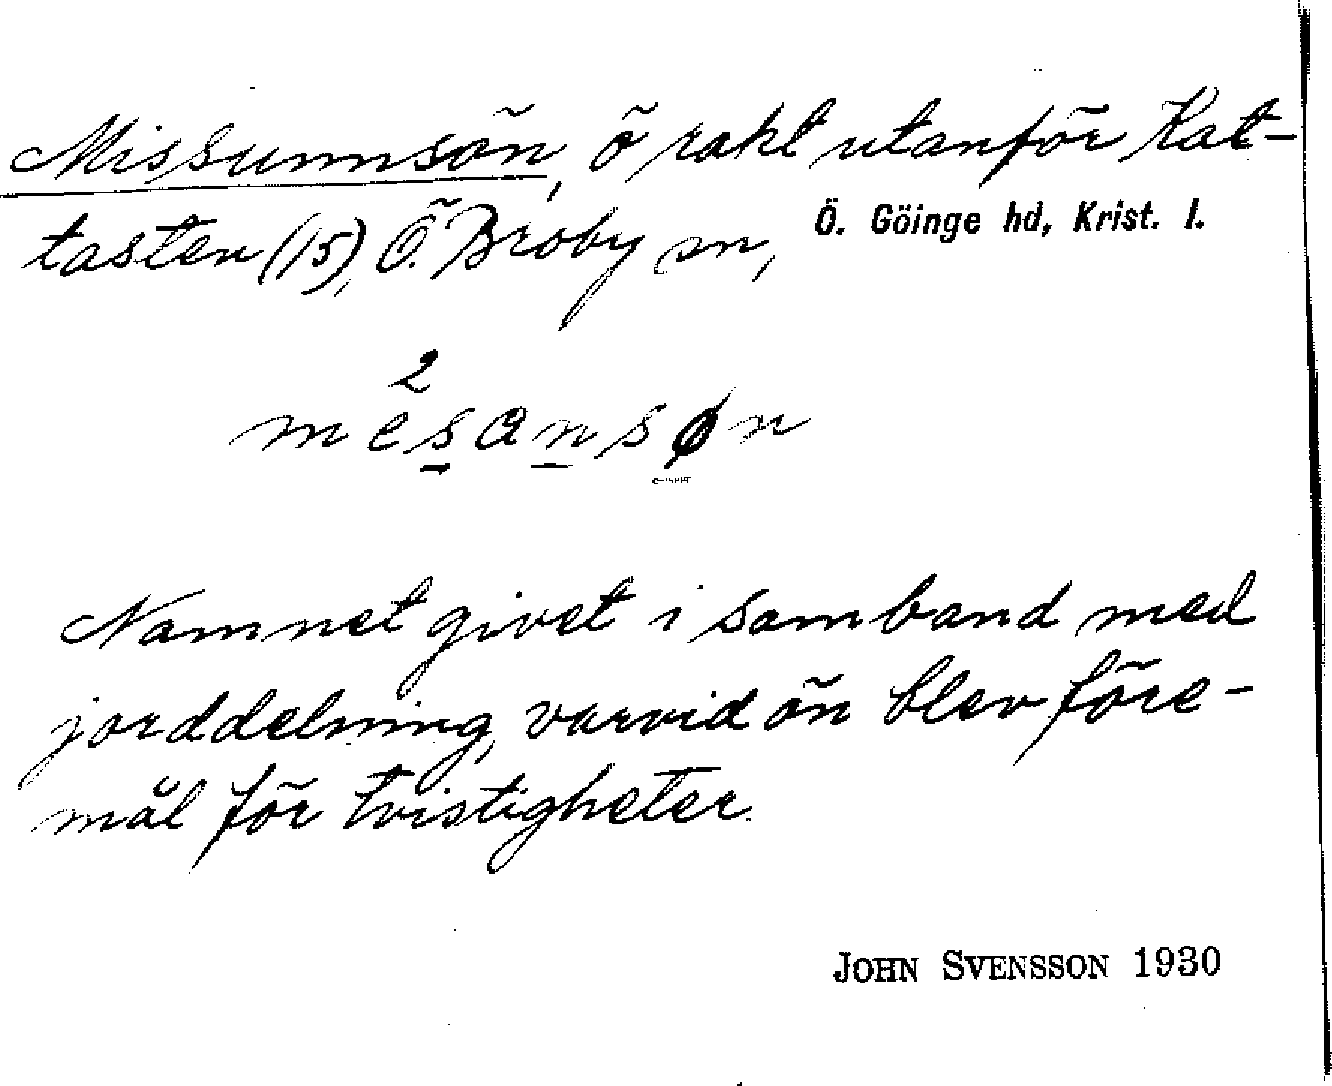 Missunnsön, ö rakt utanför Kat-
tasten (15), Ö. Broby sn, Ö. Göinge hd, Krist. l.
2
mesansøn
Namnet givet i samband med
jorddelning, varvid ön blev före-
mål för tvistigheter.
JOHN SVENSSON 1930